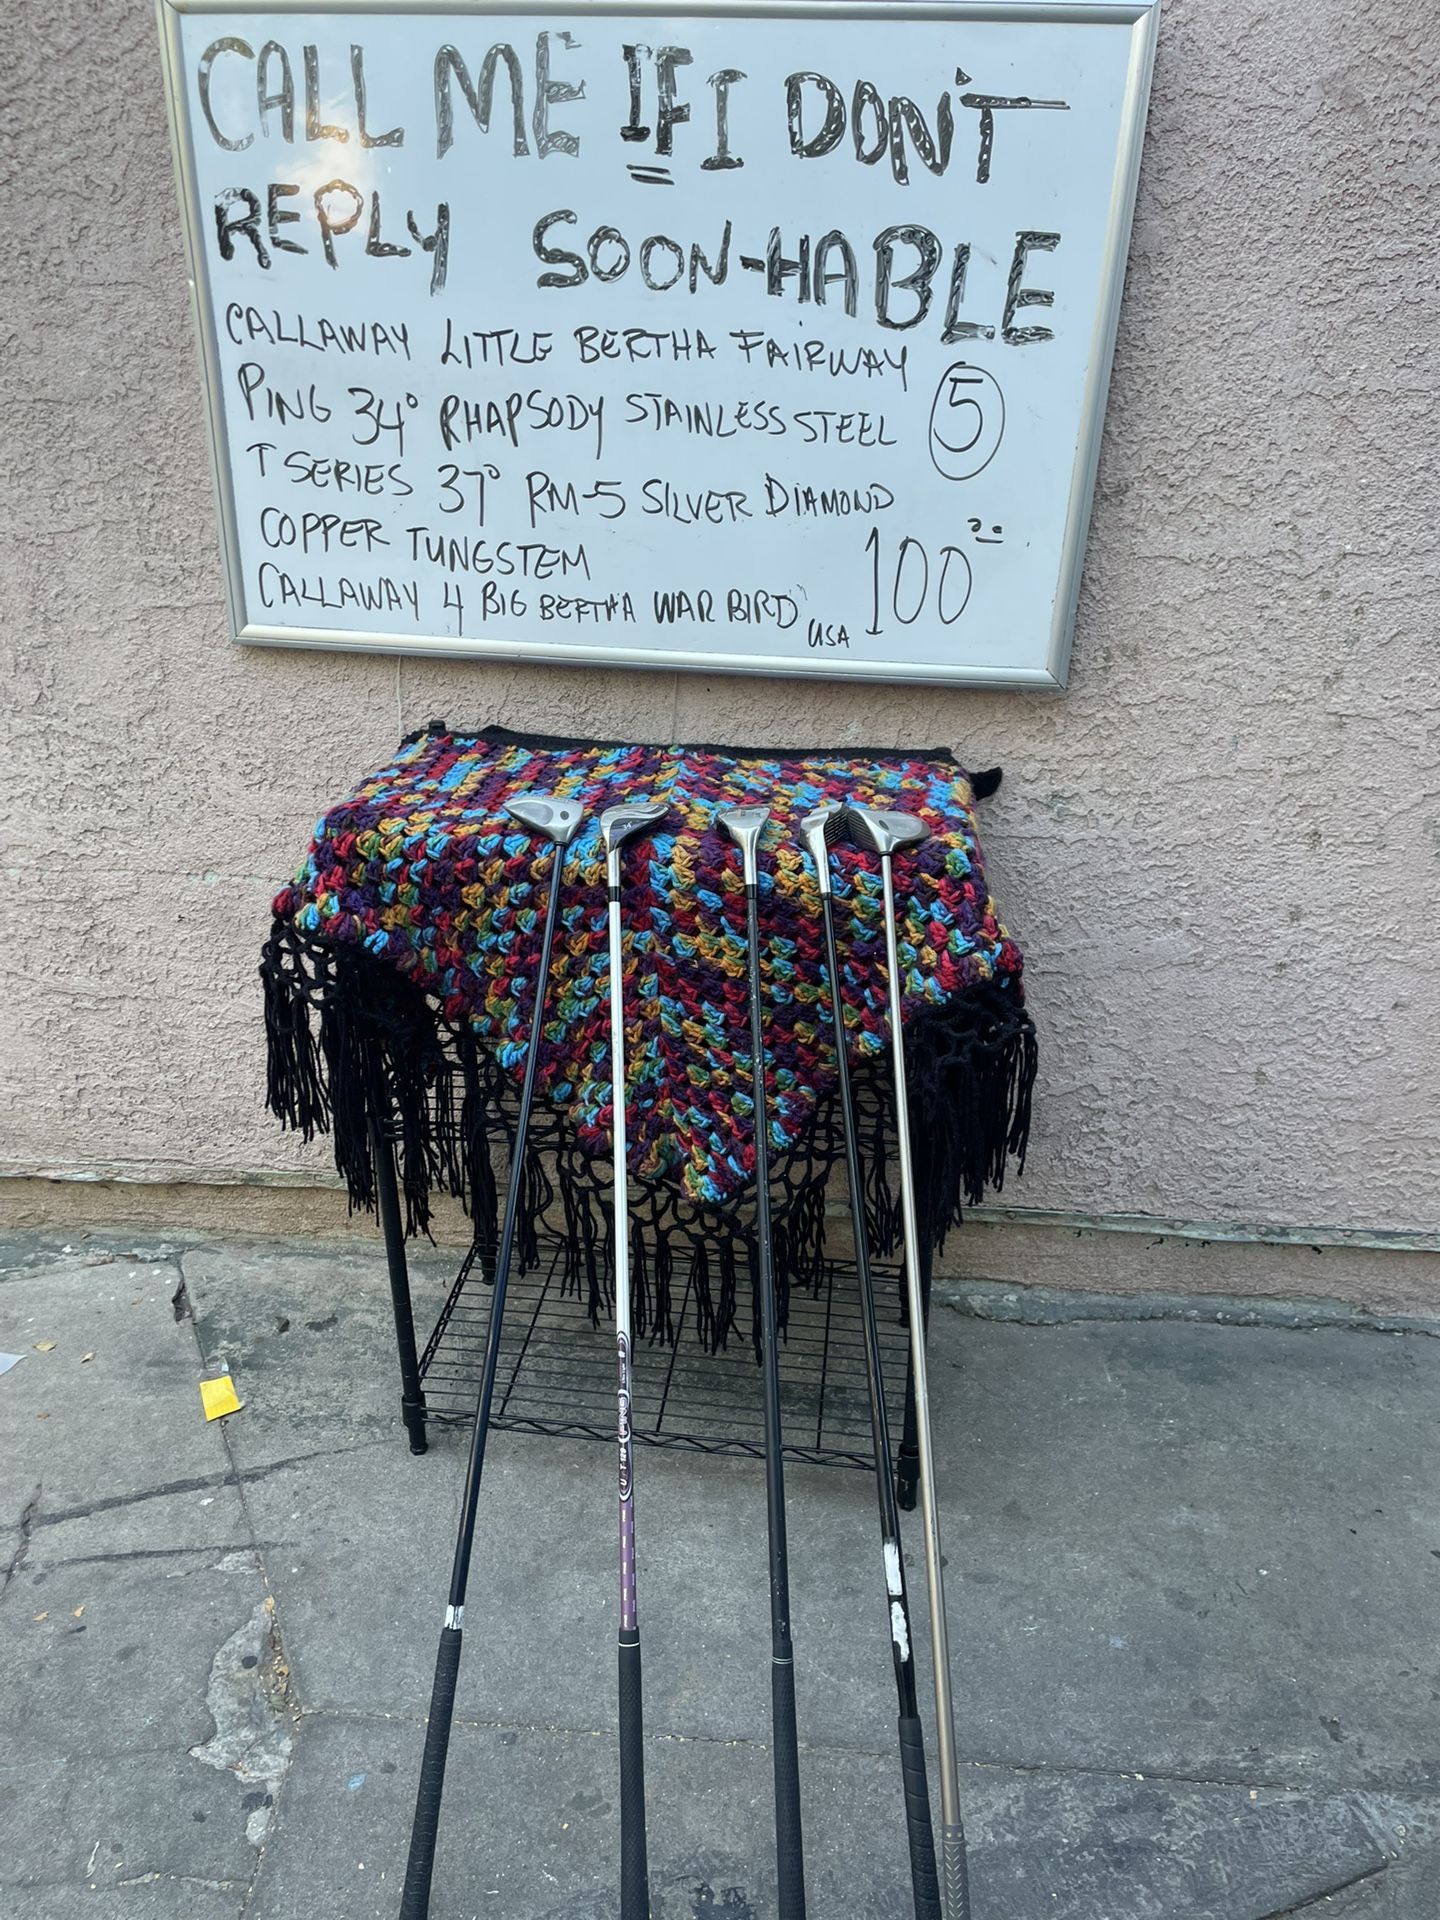 CALL ME IF I DON'T
REPLY SOON-HABLE
CALLAWAY LITTLE BERTHA FAIRWAY
PING 34° RHAPSODY STAINLESS STEEL
5
T SERIES 37° RM-5 SILVER DIAMOND
COPPER TUNGSTEM
CALLAWAY 4 BIG BERTHA WAR BIRD" USA
100
34°
PING